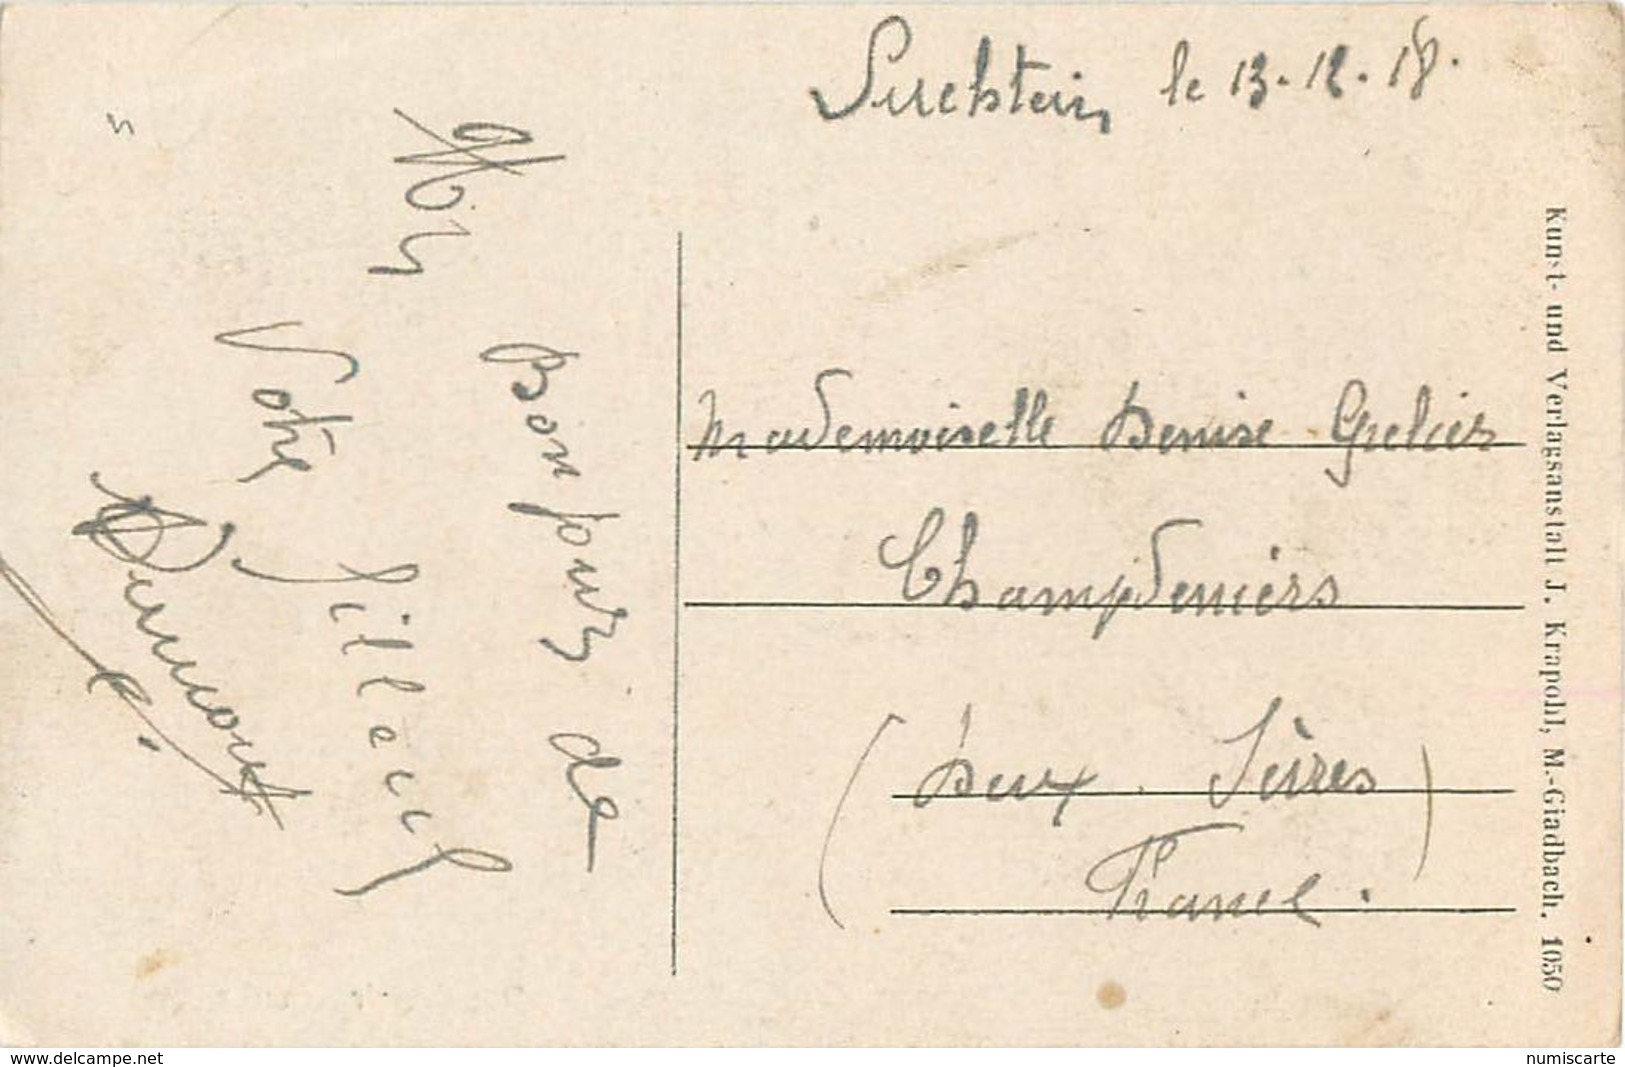 Suchtein le 13-12-18.
Un
Bonjour de
Votre filleul
Mademoiselle Denise Grelier
Champdeniers
(Deux. Sèvres)
France.
Kunst- und Verlagsanstalt J. Krapohl, M.-Gladbach. 1050
www.delcampe.net
numiscarte